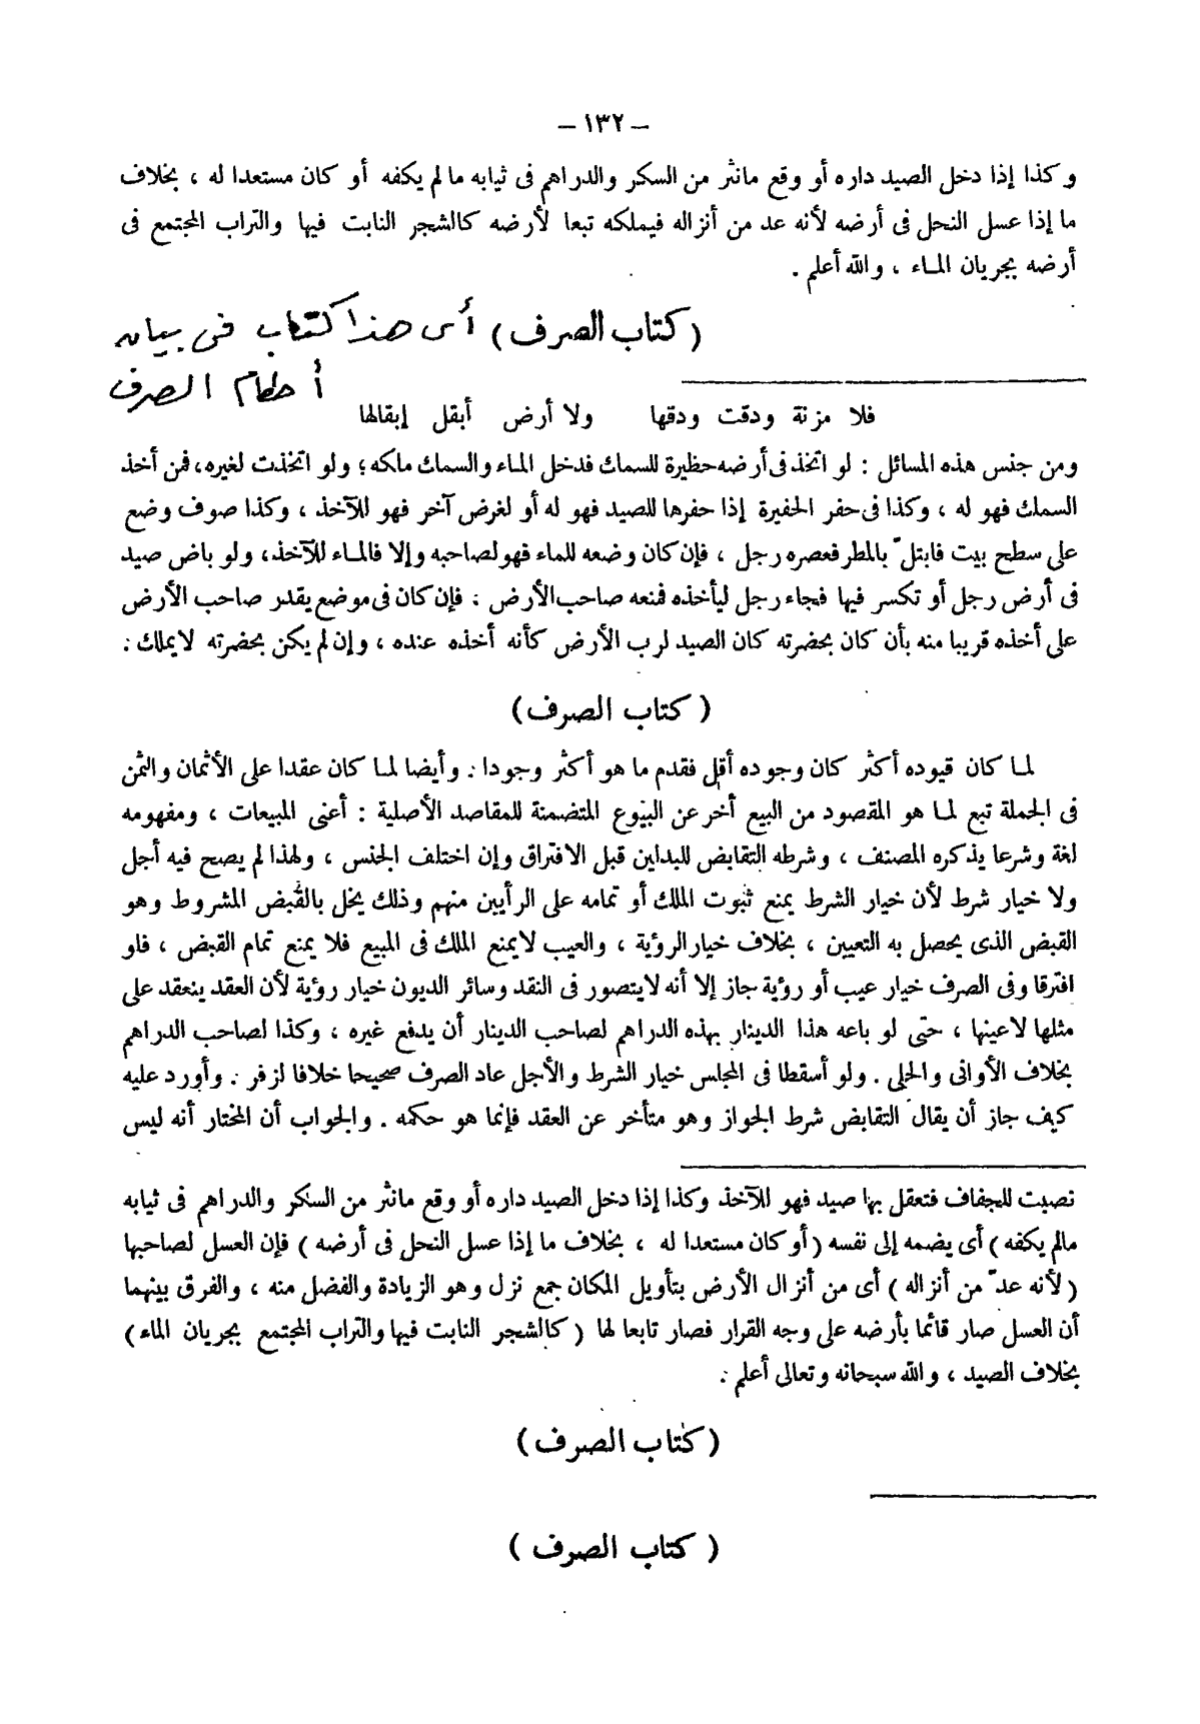 – ١٣٢ –
وكذا إذا دخل الصيد داره أو وقع مانثر من السكر والدراهم فى ثيابه ما لم يكفه أو كان مستعدا له ، بخلاف
ما إذا عسل النحل فى أرضه لأنه عد من أنزاله فيملكه تبعا لأرضه كالشجر النابت فيها والتراب المجتمع فى
أرضه بجريان المـاء ، والله أعلم .
(كتاب الصرف) أى هذا كتاب فى بيان
أحكام الصرف
فلا مزنة ودقت ودقها ولا أرض أبقل إبقالها
ومن جنس هذه المسائل : لو اتخذ فى أرضه حظيرة للسمك فدخل المـاء والسمك ملكه ؛ ولو اتخذت لغيره ، فمن أخذ
السمك فهو له ، وكذا فى حفر الحفيرة إذا حفرها للصيد فهو له أو لغرض آخر فهو للآخذ ، وكذا صوف وضع
على سطح بيت فابتلّ بالمطر فعصره رجل ، فإن كان وضعه للماء فهو لصاحبه وإلا فالمـاء للآخذ ، ولو باض صيد
فى أرض رجل أو تكسر فيها فجاء رجل ليأخذه فمنعه صاحب الأرض : فإن كان فى موضع يقدر صاحب الأرض
على أخذه قريبا منه بأن كان بحضرته كان الصيد لرب الأرض كأنه أخذه عنده ، وإن لم يكن بحضرته لايملك .
( كتاب الصرف )
لمـا كان قيوده أكثر كان وجوده أقل فقدم ما هو أكثر وجودا . وأيضا لمـا كان عقدا على الأثمان والثمن
فى الجملة تبع لمـا هو المقصود من البيع أخر عن البيوع المتضمنة للمقاصد الأصلية : أعنى المبيعات ، ومفهومه
لغة وشرعا يذكره المصنف ، وشرطه التقابض للبدلين قبل الافتراق وإن اختلف الجنس ، ولهذا لم يصح فيه أجل
ولا خيار شرط لأن خيار الشرط يمنع ثبوت الملك أو تمامه على الرأيين منهم وذلك يخل بالقبض المشروط وهو
القبض الذى يحصل به التعيين ، بخلاف خيار الرؤية ، والعيب لايمنع الملك فى المبيع فلا يمنع تمام القبض ، فلو
افترقا وفى الصرف خيار عيب أو رؤية جاز إلا أنه لايتصور فى النقد وسائر الديون خيار رؤية لأن العقد ينعقد على
مثلها لاعينها ، حتى لو باعه هذا الدينار بهذه الدراهم لصاحب الدينار أن يدفع غيره ، وكذا لصاحب الدراهم
بخلاف الأوانى والحلى . ولو أسقطا فى المجلس خيار الشرط والأجل عاد الصرف صحيحا خلافا لزفر . وأورد عليه
كيف جاز أن يقال التقابض شرط الجواز وهو متأخر عن العقد فإنما هو حكمه . والجواب أن المختار أنه ليس
نصبت للجفاف فتعقل بها صيد فهو للآخذ وكذا إذا دخل الصيد داره أو وقع مانثر من السكر والدراهم فى ثيابه
مالم يكفه ) أى يضمه إلى نفسه ( أو كان مستعدا له ، بخلاف ما إذا عسل النحل فى أرضه ) فإن العسل لصاحبها
( لأنه عدّ من أنزاله ) أى من أنزال الأرض بتأويل المكان جمع نزل وهو الزيادة والفضل منه ، والفرق بينهما
أن العسل صار قائما بأرضه على وجه القرار فصار تابعا لها ( كالشجر النابت فيها والتراب المجتمع بجريان الماء )
بخلاف الصيد ، والله سبحانه وتعالى أعلم .
( كتاب الصرف )
( كتاب الصرف )